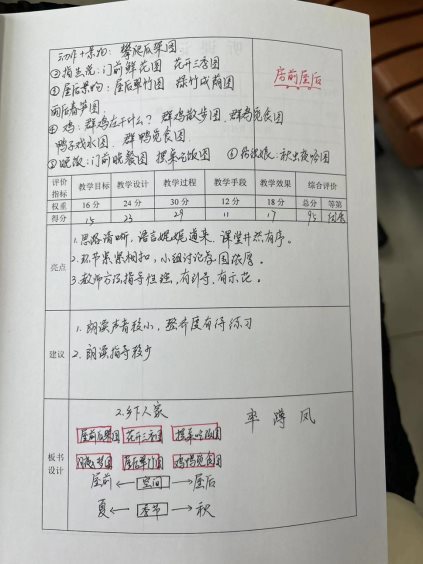 动作+景物：攀爬瓜架图
②指生说：门前鲜花图 花开三季图
房前屋后
③屋后景物：屋后翠竹图 绿竹成荫图
雨后春笋图
④鸡：群鸡在干什么？群鸡散步图、群鸡觅食图
鸭子戏水图、群鸭觅食图
⑤晚饭：门前晚餐图 摆桌吃饭图 ⑥纺织娘：秋虫夜吟图
评价指标 教学目标 教学设计 教学过程 教学手段 教学效果 综合评价
权重 16分 24分 30分 12分 18分 总分 等第
得分 15 23 29 11 17 95
亮点
1.思路清晰，语言娓娓道来，课堂井然有序。
2.环节紧紧相扣，小组讨论氛围浓厚。
3.教师方法指导恰强，有引导，有示范。
建议
1.朗读声音较小，整齐度有待练习
2.朗读指导较少
板书设计
2.乡下人家
率 鸡 凤
屋前瓜架图 花开三季图 摆桌吃饭图
屋后翠竹图 鸡鸭觅食图
屋前 ← 空间 → 屋后
夏 ← 季节 → 秋